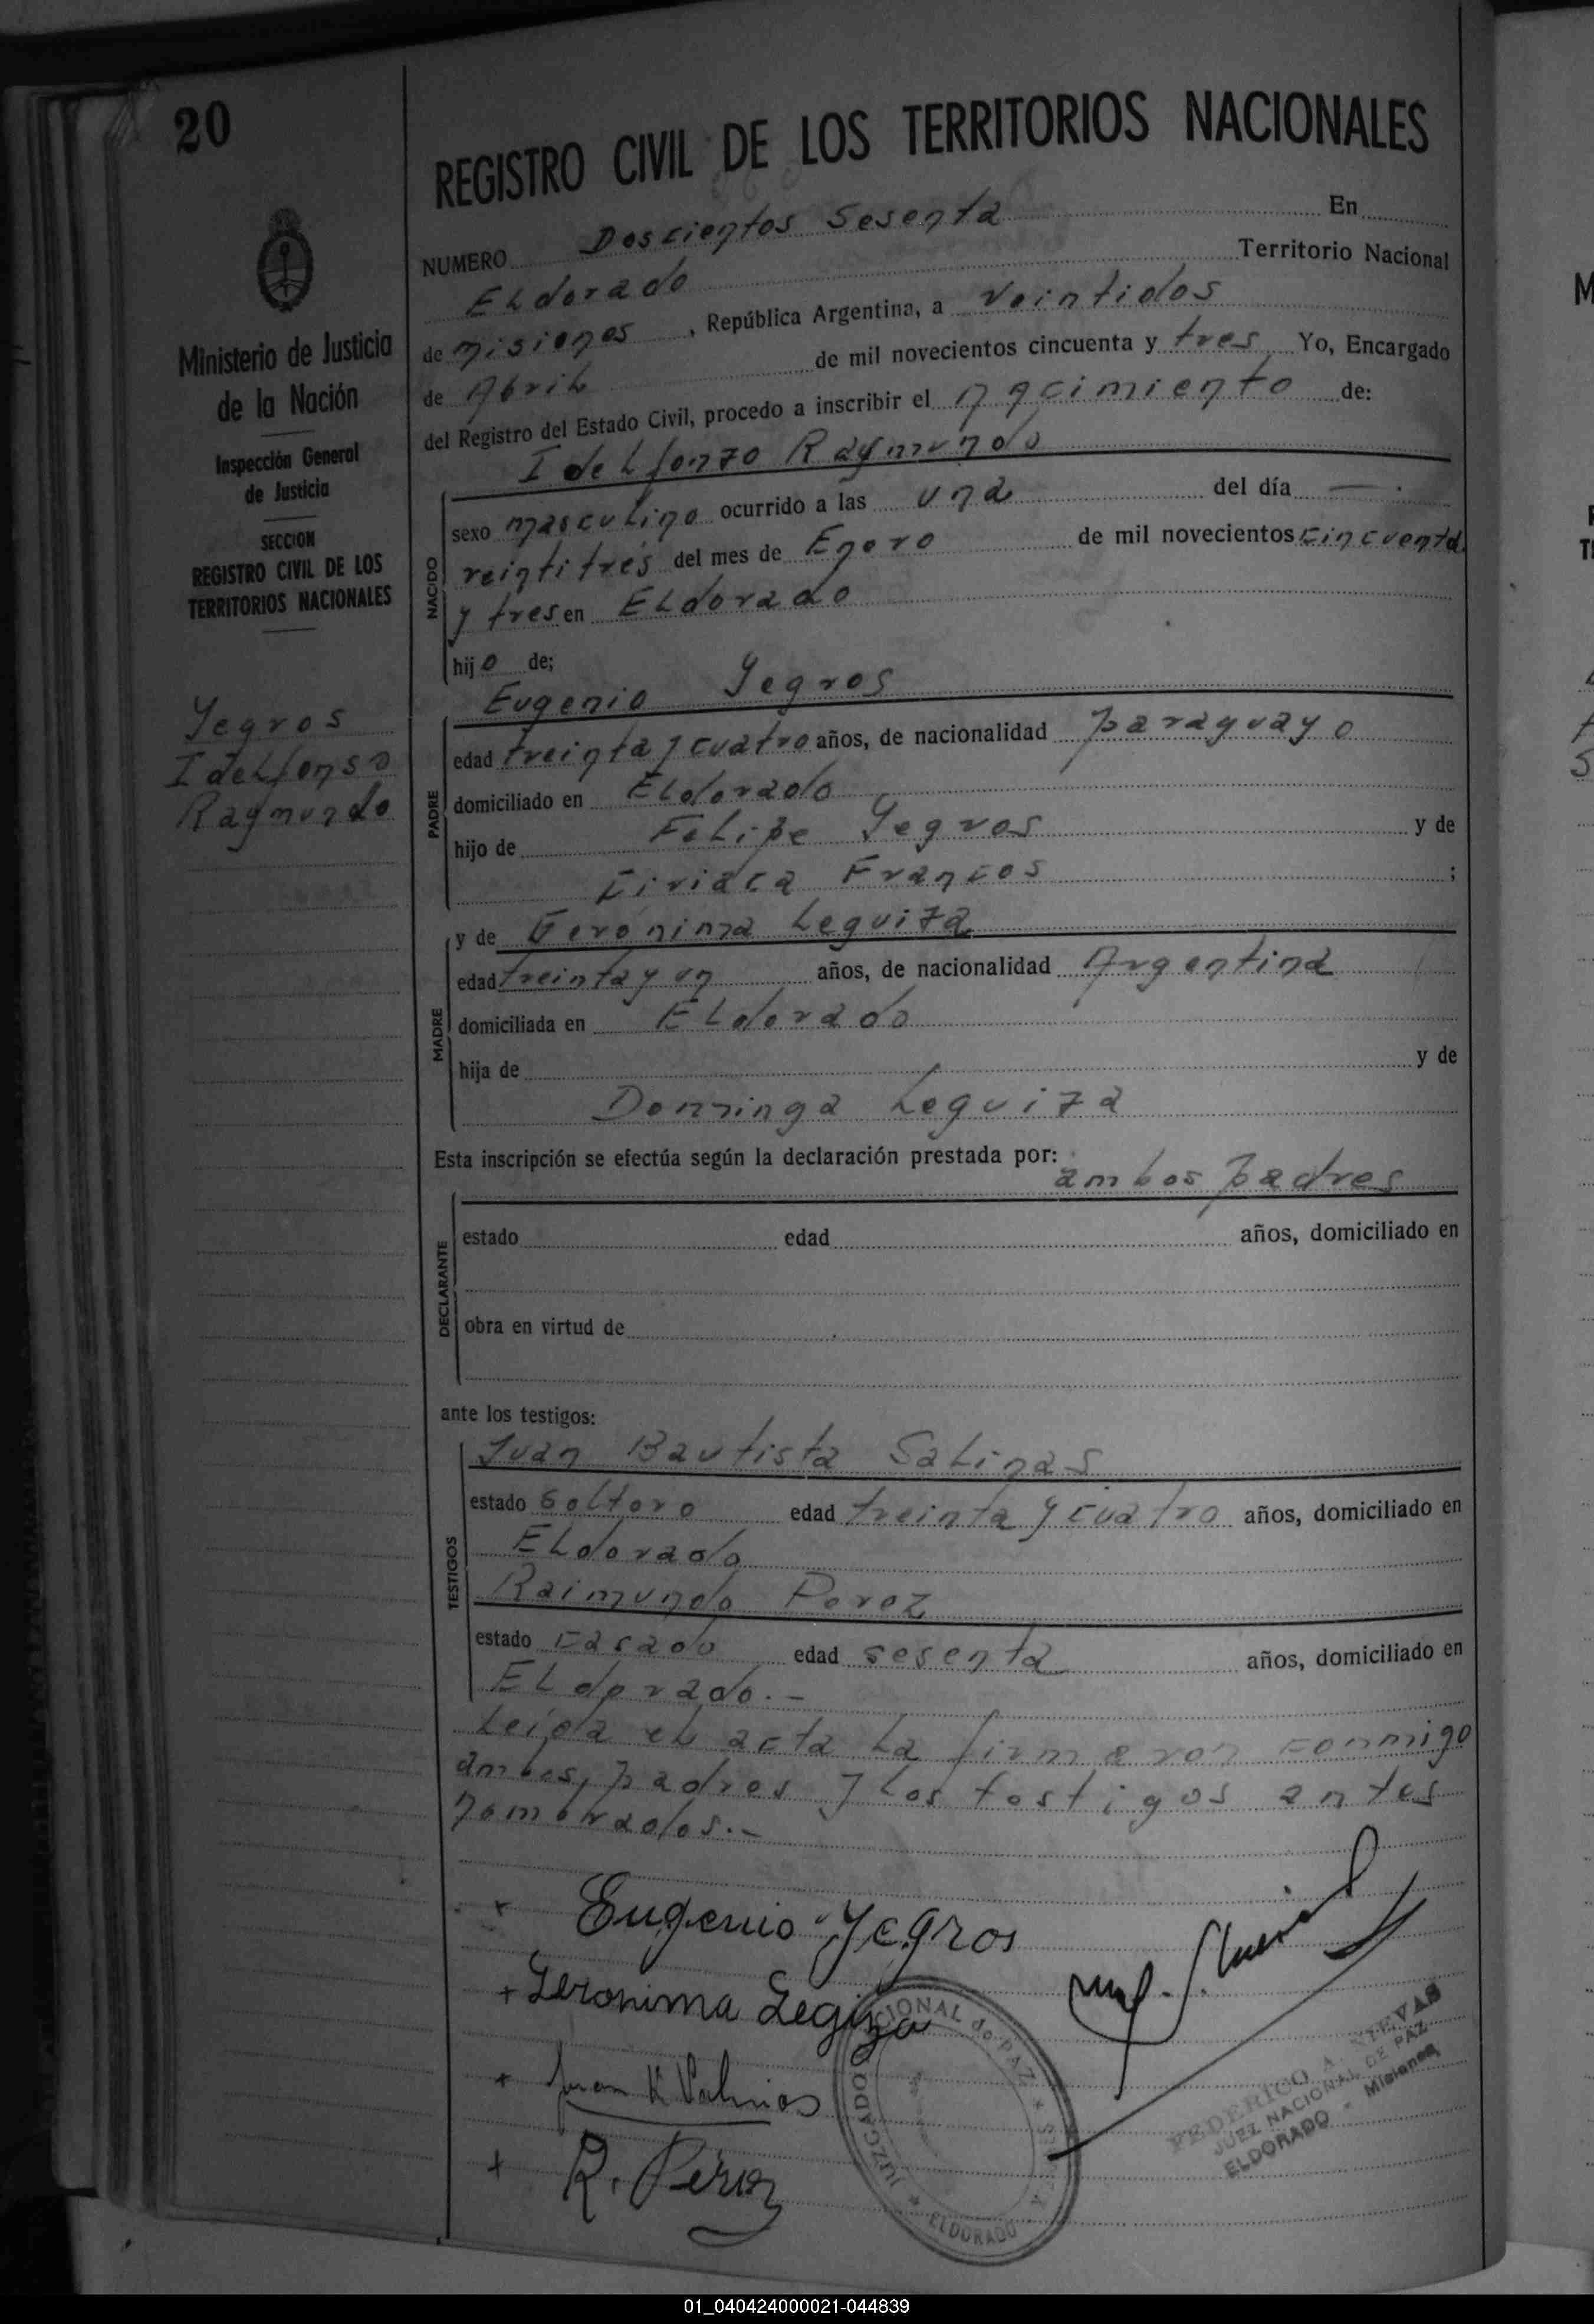 20
REGISTRO CIVIL DE LOS TERRITORIOS NACIONALES
Ministerio de Justicia
de la Nación
Inspección General
de Justicia
SECCION
REGISTRO CIVIL DE LOS
TERRITORIOS NACIONALES
Yegros
Idelfonso
Raymundo
NUMERO Doscientos Sesenta En
Eldorado Territorio Nacional
de Misiones, República Argentina, a Veintidos
de Abril de mil novecientos cincuenta y tres Yo, Encargado
del Registro del Estado Civil, procedo a inscribir el nacimiento de:
Idelfonzo Raymundo
NACIDO
sexo masculino ocurrido a las una del día — .
veintitrés del mes de Enero de mil novecientos cincuenta
y tres en Eldorado
hijo de;
Eugenio Yegros
PADRE
edad treinta y cuatro años, de nacionalidad paraguayo
domiciliado en Eldorado
hijo de Felipe Yegros y de
Ciriaca Francos ;
y de Gerónima Leguiza
MADRE
edad treinta y un años, de nacionalidad Argentina
domiciliada en Eldorado
hija de y de
Dominga Leguiza
Esta inscripción se efectúa según la declaración prestada por:
ambos padres
DECLARANTE
estado edad años, domiciliado en
obra en virtud de
ante los testigos:
Juan Bautista Salinas
TESTIGOS
estado Soltero edad treinta y cuatro años, domiciliado en
Eldorado
Raimundo Perez
estado casado edad sesenta años, domiciliado en
Eldorado.-
Leída el acta la firmaron conmigo
ambos padres y los testigos antes
nombrados.-
Eugenio Yegros
+ Geronima Legiza
+ Juan B Salinas
+ R. Pérez
JUZGADO NACIONAL de PAZ
ELDORADO
FEDERICO A. NIEVAS
JUEZ NACIONAL DE PAZ
ELDORADO - Misiones
01_040424000021-044839